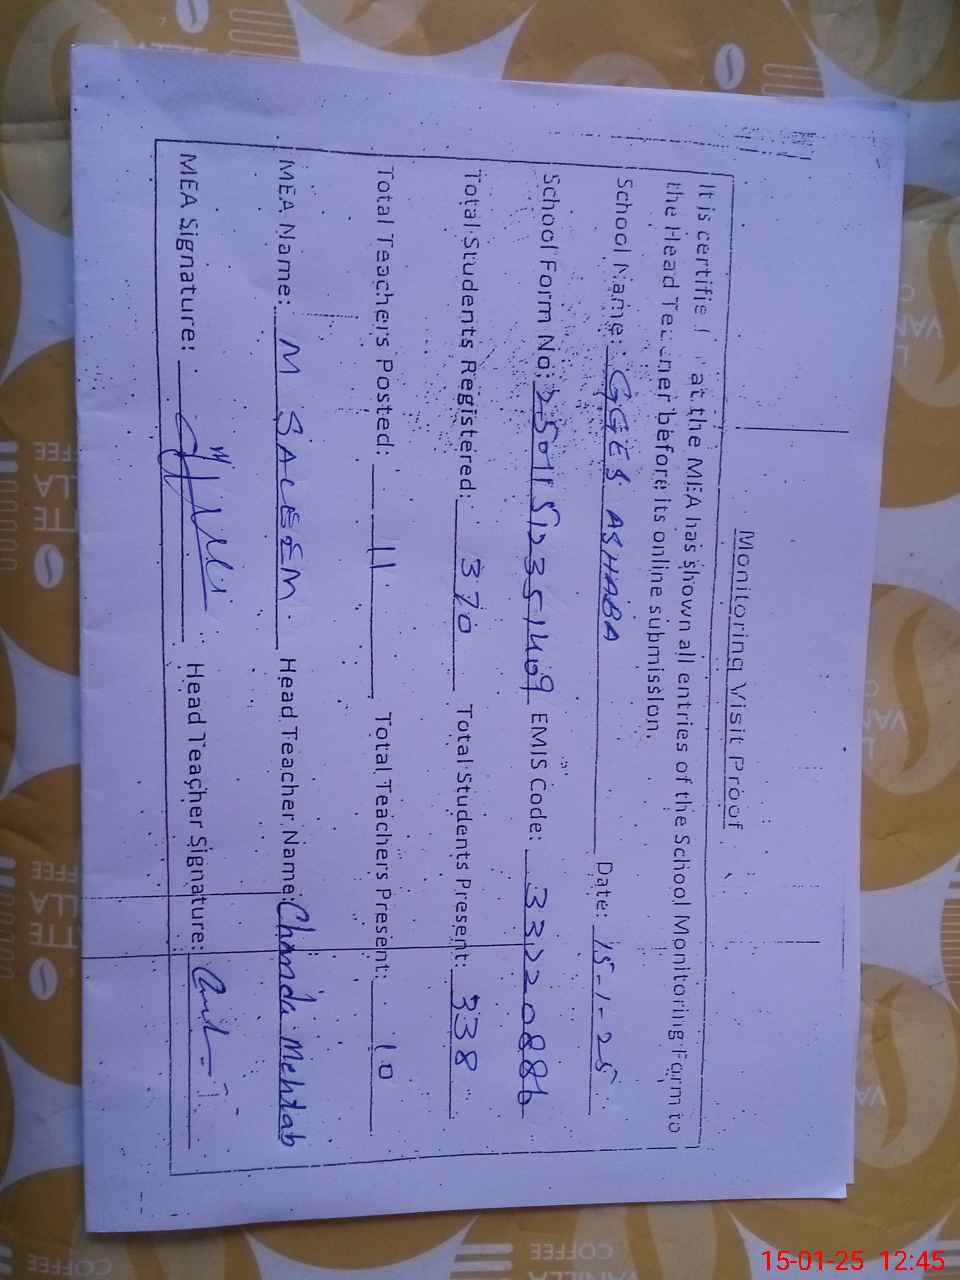 Monitoring Visit Proof
It is certifie at the MEA has shown all entries of the School Monitoring Farm to
the Head Teacher before its online submission.
School Name: GGES ASHABA Date: 15-1-25
School Form No: EMIS Code: 33220886
Total Students Registered: 370 Total Students Present: 338
Total Teachers Posted: 11 Total Teachers Present: 10
MEA Name: M SALEEM Head Teacher Name: Chanda Mehtab
MEA Signature: Head Teacher Signature:
COFFEE
LATTE
VANILLA
15-01-25 12:45